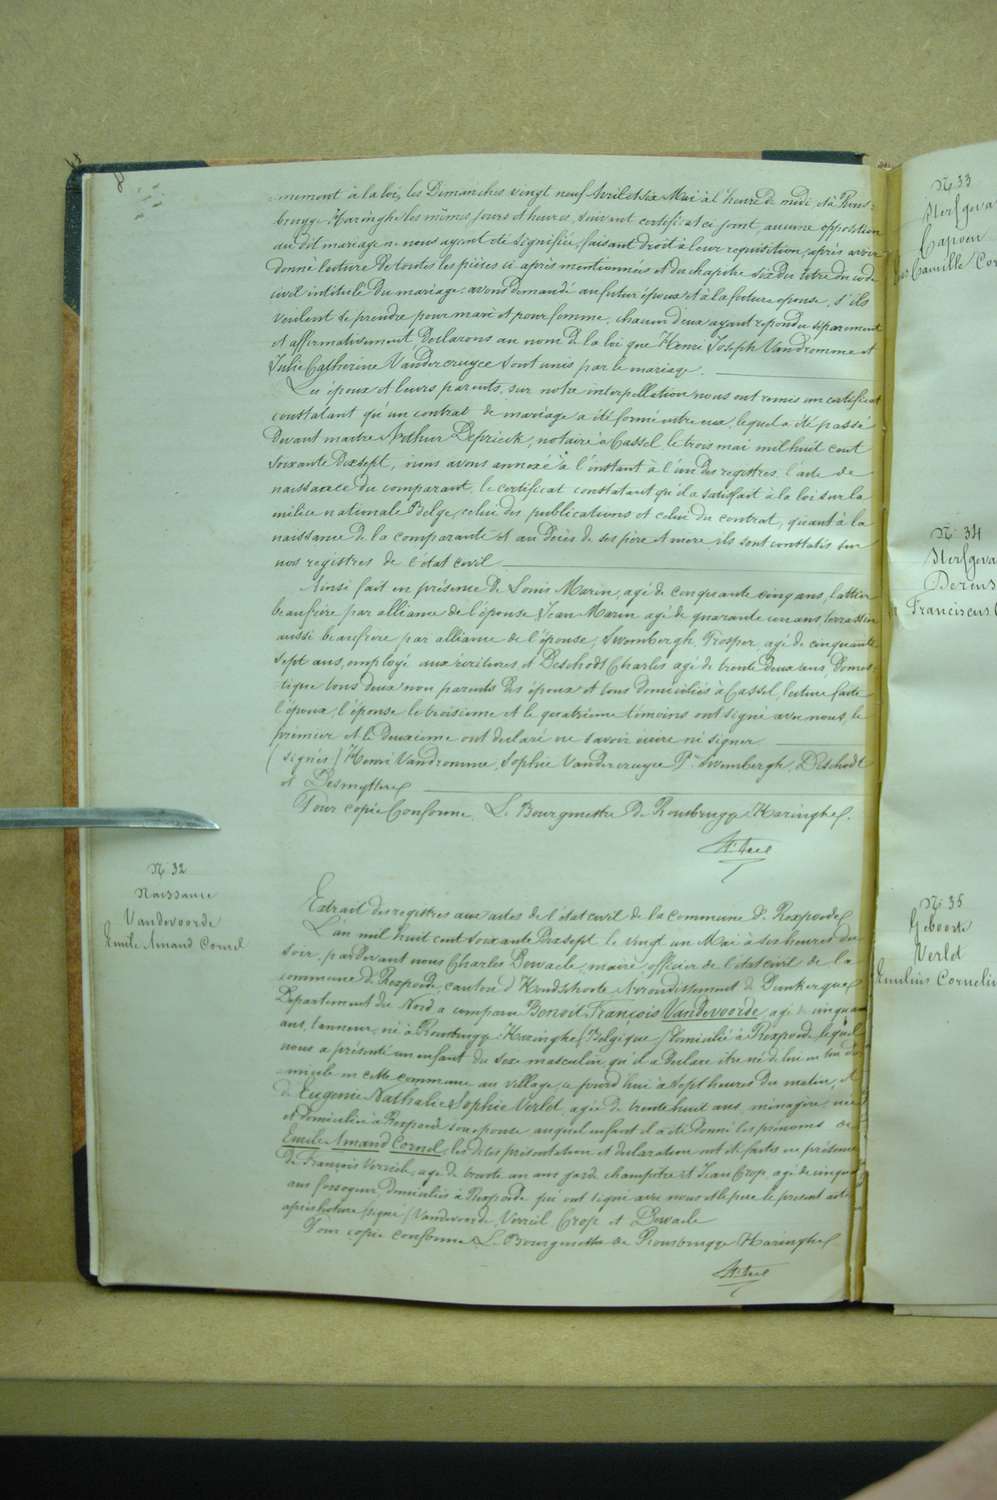 8
-mement à la loi, les Dimanches vingt neuf Avril et six Mai à l'heure de midi, et à Rous-
brugge-Haringhe les mêmes jours et heures, suivant certificat ci joint, aucune opposition
au dit mariage ne nous ayant été signifiée, faisant droit à leur requisition, après avoir
donné lecture de toutes les pièces ci après mentionnées et du chapitre six du titre du code
civil intitulé Du mariage, avons demandé au futur époux et à la future épouse, s'ils
veulent se prendre pour mari et pour femme, chacun d'eux ayant répondu séparement
et affirmativement, Déclarons au nom de la loi que Henri Joseph Vandromme et
Julie Catherine Vandercruyce sont unis par le mariage.
Les époux et leurs parents, sur notre interpellation nous ont remis un certificat
constatant qu'un contrat de mariage a été formé entre eux, lequel a été passé
devant maitre Arthur Deprieck, notaire à Cassel, le trois mai mil huit cent
soixante Dixsept, nous avons annexé à l'instant à l'un des registres, l'acte de
naissance du comparant, le certificat constatant qu'il a satisfait à la loi sur la
milice nationale Belge, celui des publications et celui du contrat, quant à la
naissance de la comparante et au décès de ses père et mère, ils sont constatés sur
nos registres de l'état civil
Ainsi fait en présence de Louis Marin, agé de cinquante cinq ans, lattier
beaufrère par alliance de l'épouse, Jean Marin agé de quarante un ans terrassier
aussi beaufrère par alliance de l'épouse, Swembergh Prosper, agé de cinquante
sept ans, employé aux écritures et Deschodt Charles agé de trente deux ans, Domes-
-tique tous deux non parents des époux et tous domiciliés à Cassel, lecture faite
l'époux, l'épouse, le troisième et le quatrième témoins ont signé avec nous, le
premier et le deuxième ont declaré ne savoir écrire ni signer.
(signés) Henri Vandromme, Sophie Vandercruyce, Pr Swembergh, Deschodt
et Desmyttere
Pour copie Conforme, Le Bourgmestre de Rousbrugge-Haringhe.
N° 32
Naissance
Vandevoorde
Emile Amand Cornel
Extrait des registres aux actes de l'état civil de la Commune de Rexpoede
L'an mil huit cent soixante Dixsept le vingt un Mai à six heures du
soir, par devant nous Charles Dewaele, maire, officier de l'état civil de la
commune de Rexpoede, canton d'Hondschoote Arrondissement de Dunkerque
Departement du Nord a comparu Benoit François Vandevoorde, agé de cinquante
ans, tanneur, né à Rousbrugge-Haringhe (Belgique) Domicilié à Rexpoede, lequel
nous a présenté un enfant du sexe masculin, qu'il a declare être né de lui en son do-
-micile en cette commune au village, ce jourd'hui à sept heures du matin, et
de Eugenie Nathalie Sophie Verlet, agée de trente huit ans, ménagère, née
et domiciliée à Rexpoede son épouse auquel enfant il a été donné les prénoms de
Emile Amand Cornel, les dites présentation et declaration ont été faites en présence
de François Verriel, agé de trente un ans garde champêtre et Jean Crop, agé de cinquante
ans fossoyeur, Domiciliés à Rexpoede qui ont signé avec nous et le père le present acte
après lecture (signé) Vandevoorde, Verriel, Crop et Dewaele
Pour copie conforme Le Bourgmestre de Rousbrugge-Haringhe
N° 33
N° 34
Franciscus
N° 35
Geboorte
Verlet
Emilius Cornelius